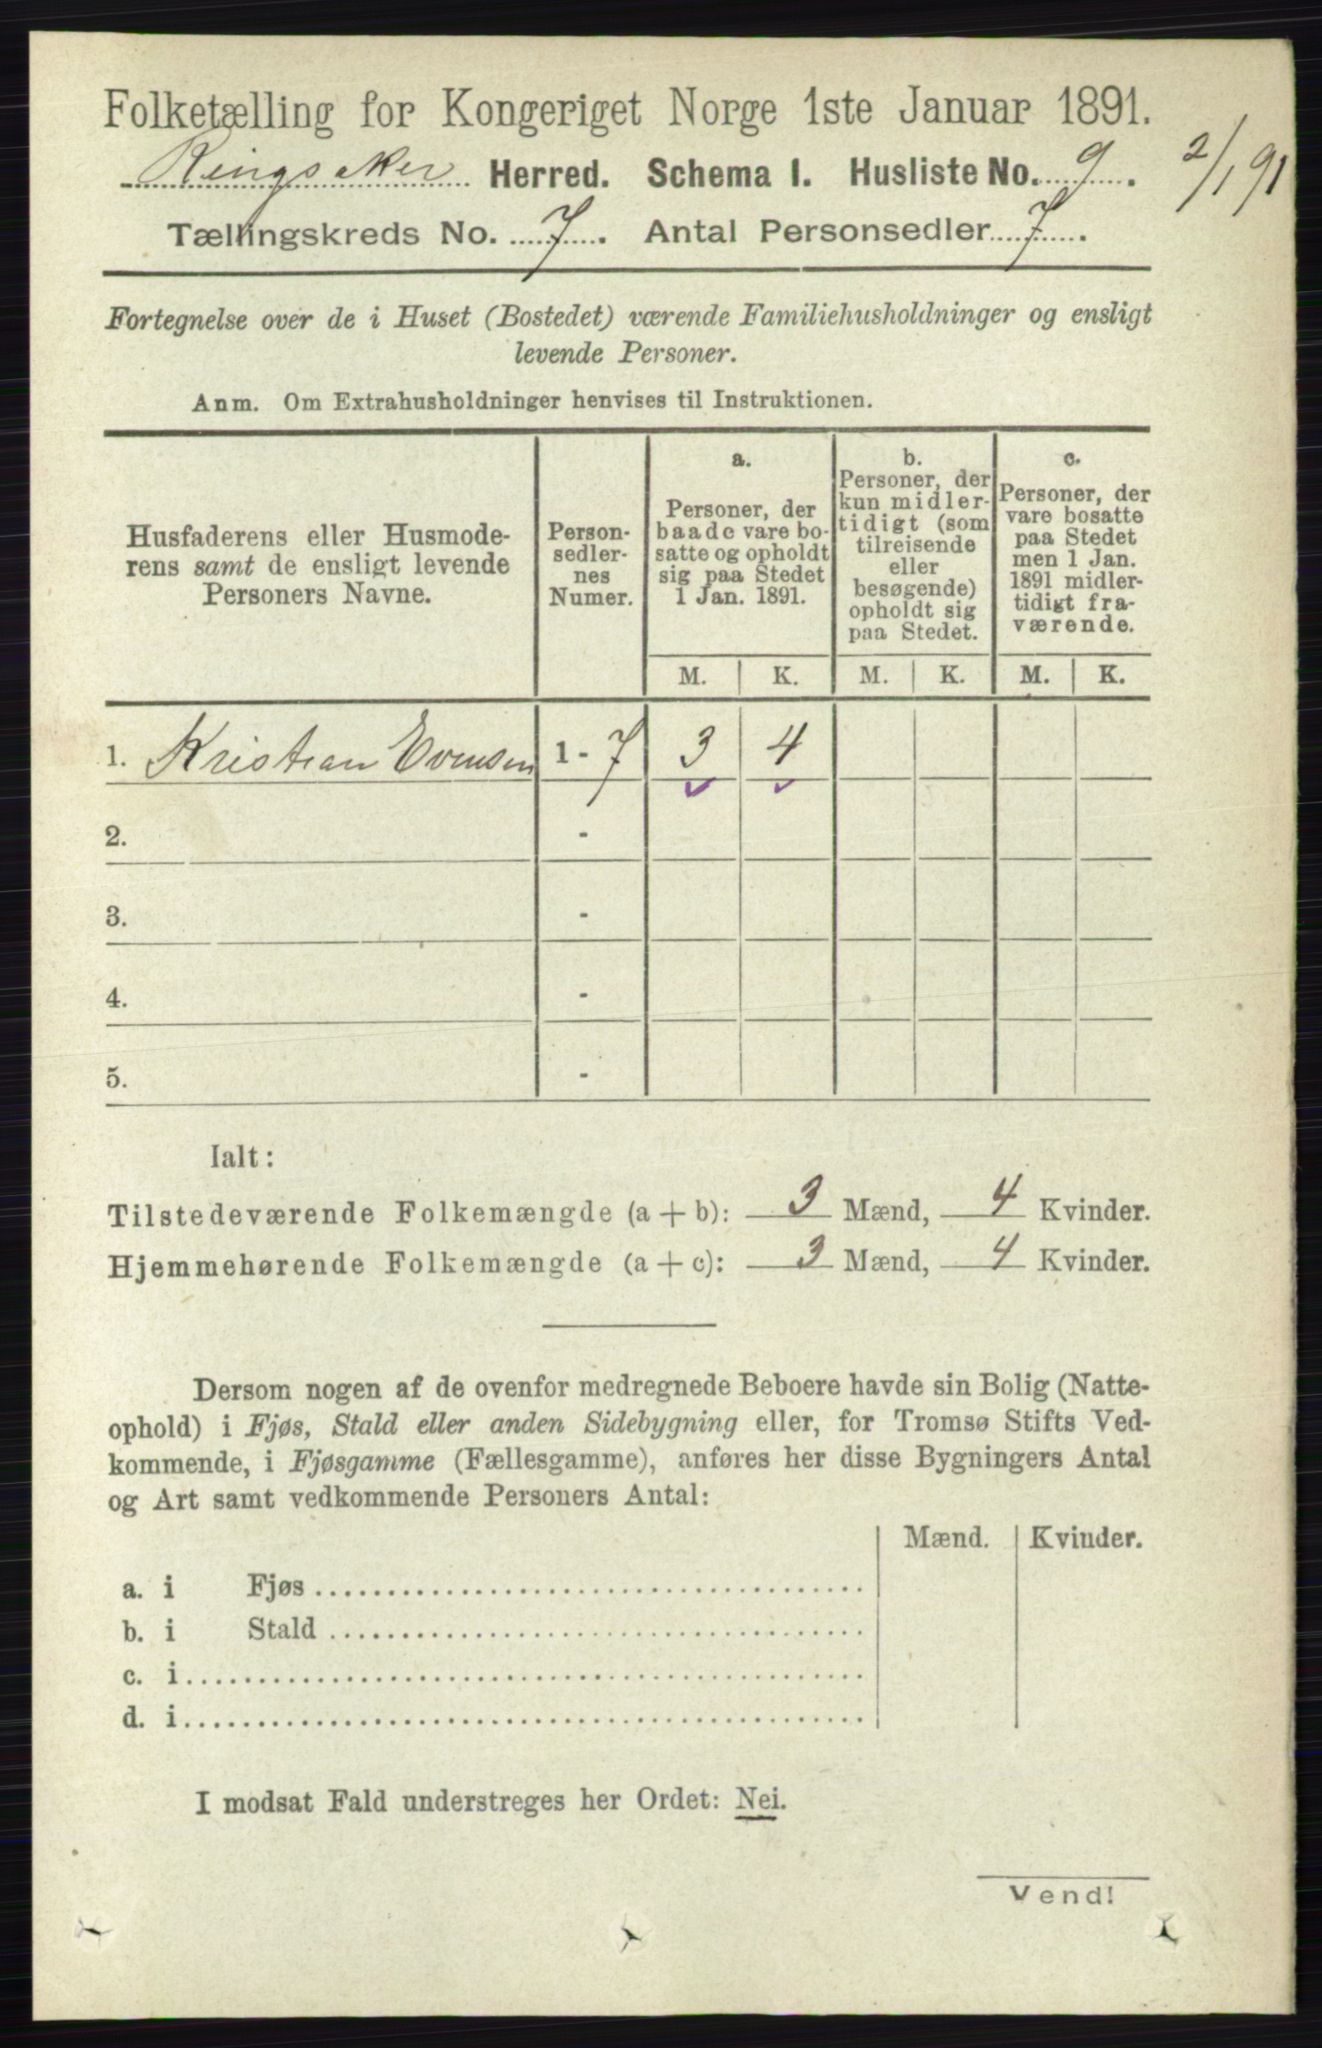 Folketælling for Kongeriget Norge 1ste Januar 1891.
Ringsaker Herred. Schema I. Husliste No. 9. 2/1 91
Tællingskreds No. 7. Antal Personsedler 7.
Fortegnelse over de i Huset (Bostedet) værende Familiehusholdninger og ensligt
levende Personer.
Anm. Om Extrahusholdninger henvises til Instruktionen.
Husfaderens eller Husmode-
rens samt de ensligt levende
Personers Navne.
Person-
sedler-
nes
Numer.
a.
Personer, der
baade vare bo-
satte og opholdt
sig paa Stedet
1 Jan. 1891.
b.
Personer, der
kun midler-
tidigt (som
tilreisende
eller
besøgende)
opholdt sig
paa Stedet.
c.
Personer, der
vare bosatte
paa Stedet
men 1 Jan.
1891 midler-
tidigt fra-
værende.
M. K. M. K. M. K.
1. Kristian Evensen 1 - 7 3 4
2. -
3. -
4. -
5. -
Ialt:
Tilstedeværende Folkemængde (a + b): 3 Mænd, 4 Kvinder.
Hjemmehørende Folkemængde (a + c): 3 Mænd, 4 Kvinder.
Dersom nogen af de ovenfor medregnede Beboere havde sin Bolig (Natte-
ophold) i Fjøs, Stald eller anden Sidebygning eller, for Tromsø Stifts Ved-
kommende, i Fjøsgamme (Fællesgamme), anføres her disse Bygningers Antal
og Art samt vedkommende Personers Antal:
Mænd. Kvinder.
a. i Fjøs
b. i Stald
c. i
d. i
I modsat Fald understreges her Ordet: Nei.
Vend!